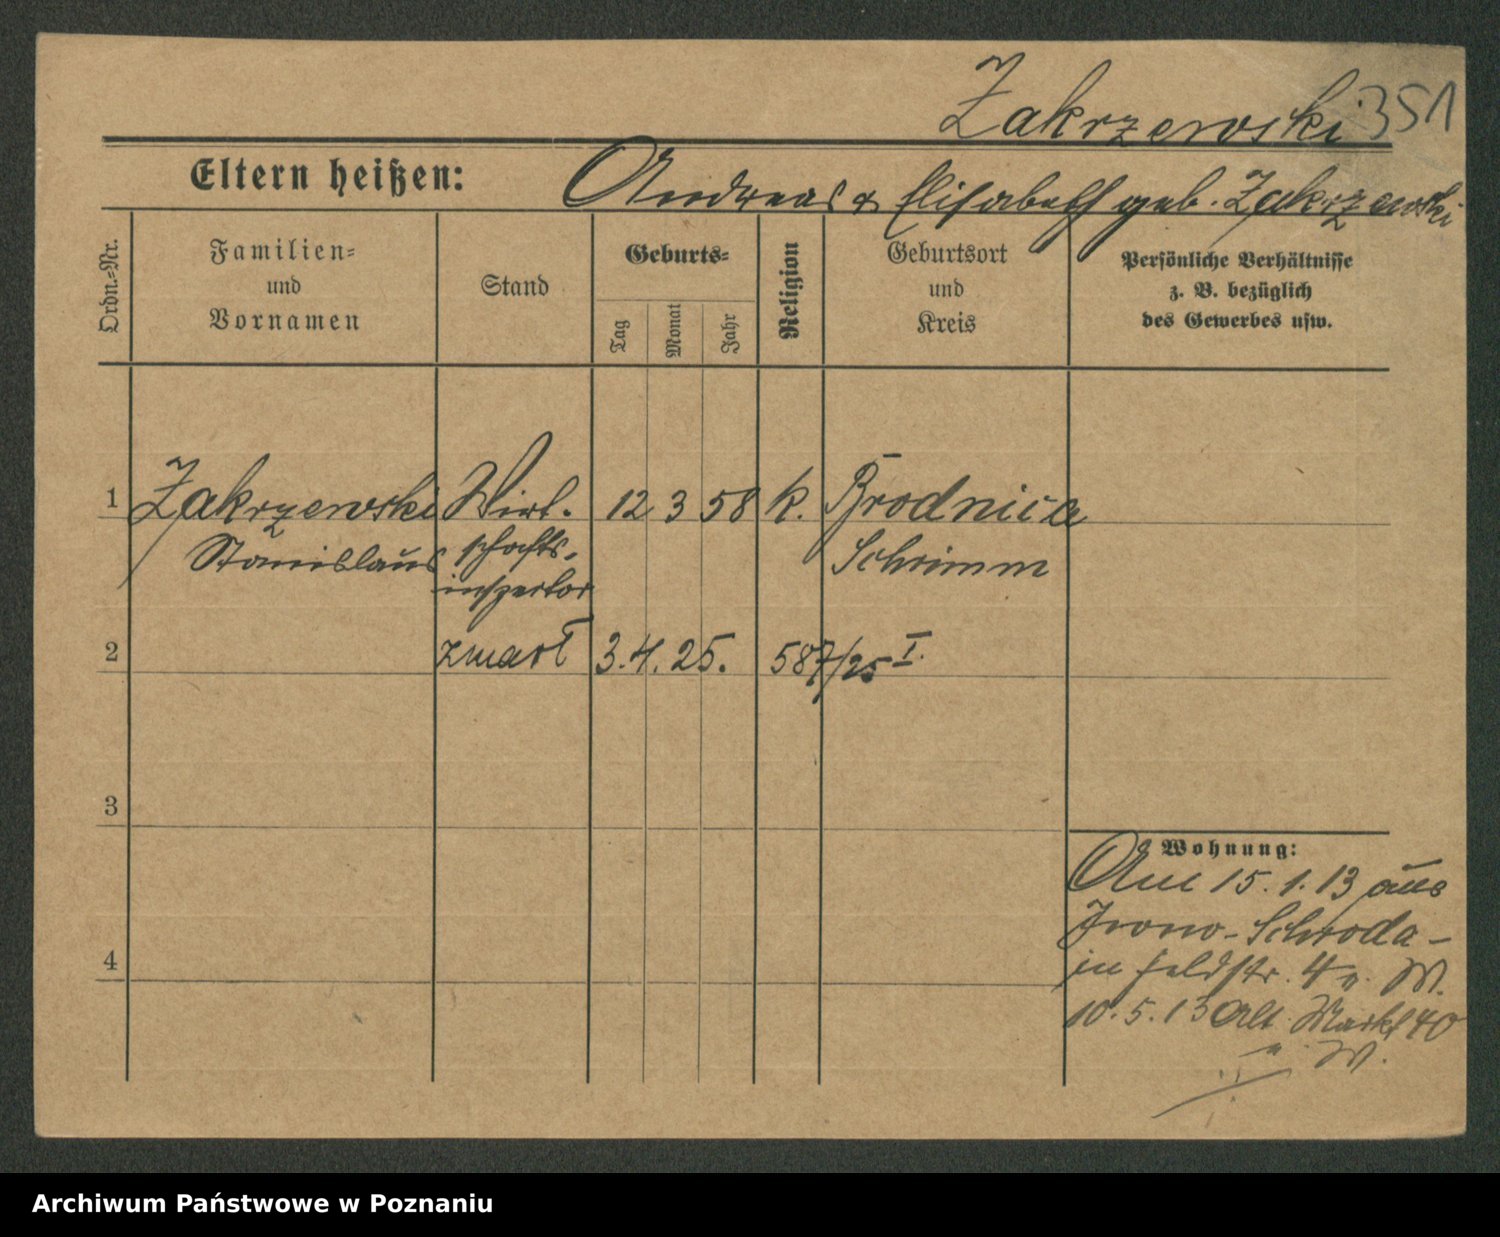 Zakrzewski 351
Eltern heißen: Andreas & Elisabeth geb. Zakrzewski
Ordn.-Nr.
Familien-
und
Vornamen
Stand
Geburts-
Tag
Monat
Jahr
Religion
Geburtsort
und
Kreis
Persönliche Verhältnisse
z. B. bezüglich
des Gewerbes usw.
1 Zakrzewski Wirt- 12 3 58 k. Brodnica
Stanislaus schafts- Schrimm
inspektor
2 zmarł 3.4.25. 587/25 I.
3
Wohnung:
Am 15.1.13 aus
-Schroda-
4
in Feldstr. 4 W.
10.5.13 Alt. Markt 40
W.
Archiwum Państwowe w Poznaniu